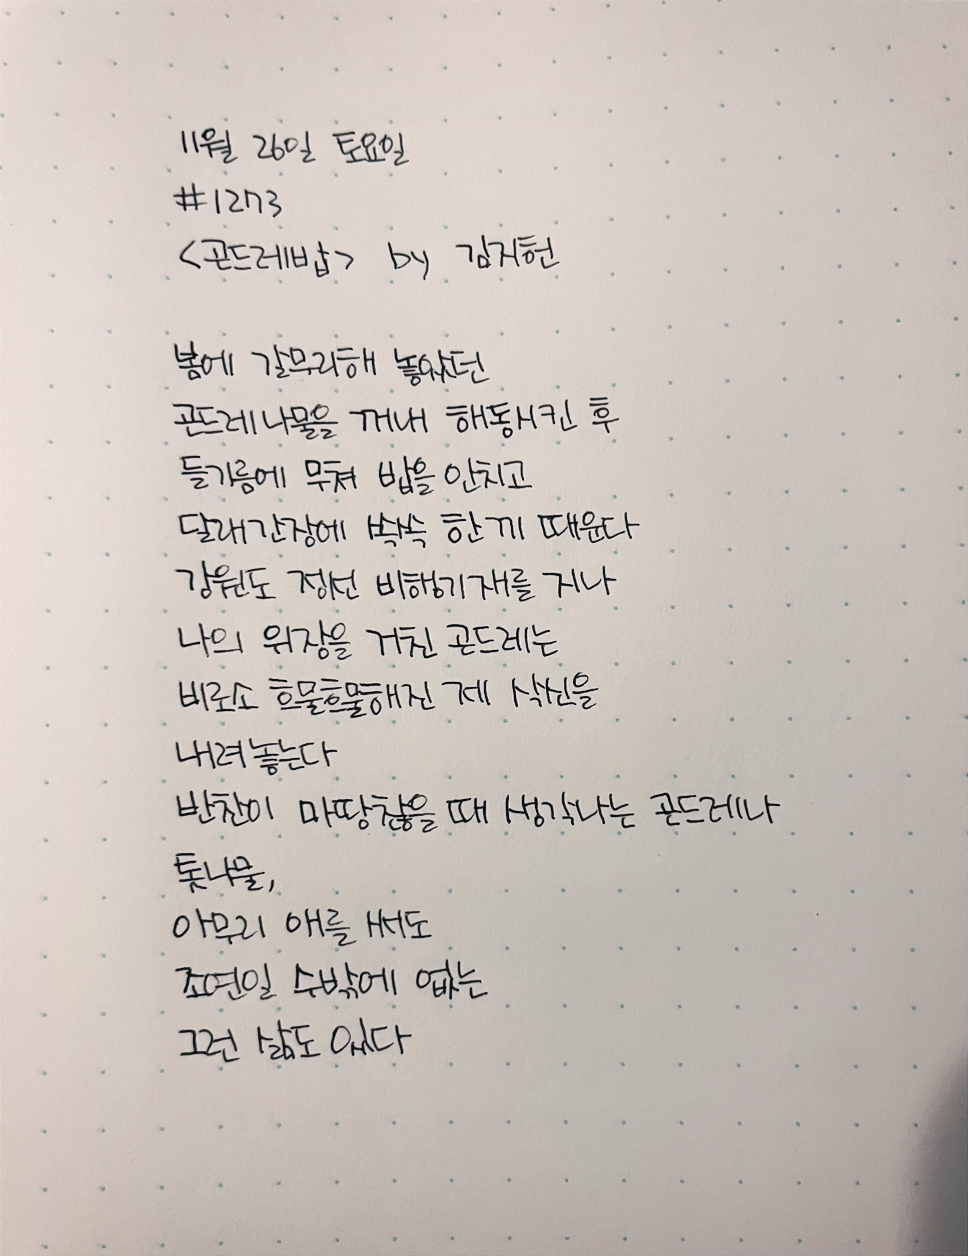 11월 26일 토요일
#1273
<곤드레밥> by 김지헌
봄에 갈무리해 놓았던
곤드레나물을 꺼내 해동시킨 후
들기름에 무쳐 밥을 안치고
달래간장에 쓱쓱 한 끼 때운다
강원도 정선 비행기재를 지나
나의 위장을 거친 곤드레는
비로소 흐물흐물해진 제 삭신을
내려놓는다
반찬이 마땅찮을 때 생각나는 곤드레나
톳나물,
아무리 애를 써도
조연일 수밖에 없는
그런 삶도 있다